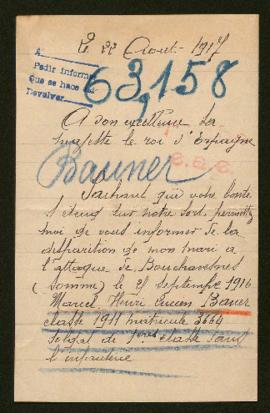 Le 22 Aout 1917
A
Pedir informe
que se hace al
Devolver
63,158
A son excellence Sa
majesté le roi d'Espagne
Bauner
e.a.e.
Sachant que votre bonté
s'étend sur notre sort permettez
moi de vous informer de la
disparition de mon mari a
l'attaque de Bouchavesnes
(Somme) le 25 septembre 1916
Marcel Henri Bauer
classe 1911 matricule 3664
Soldat de classe dans
l'infanterie